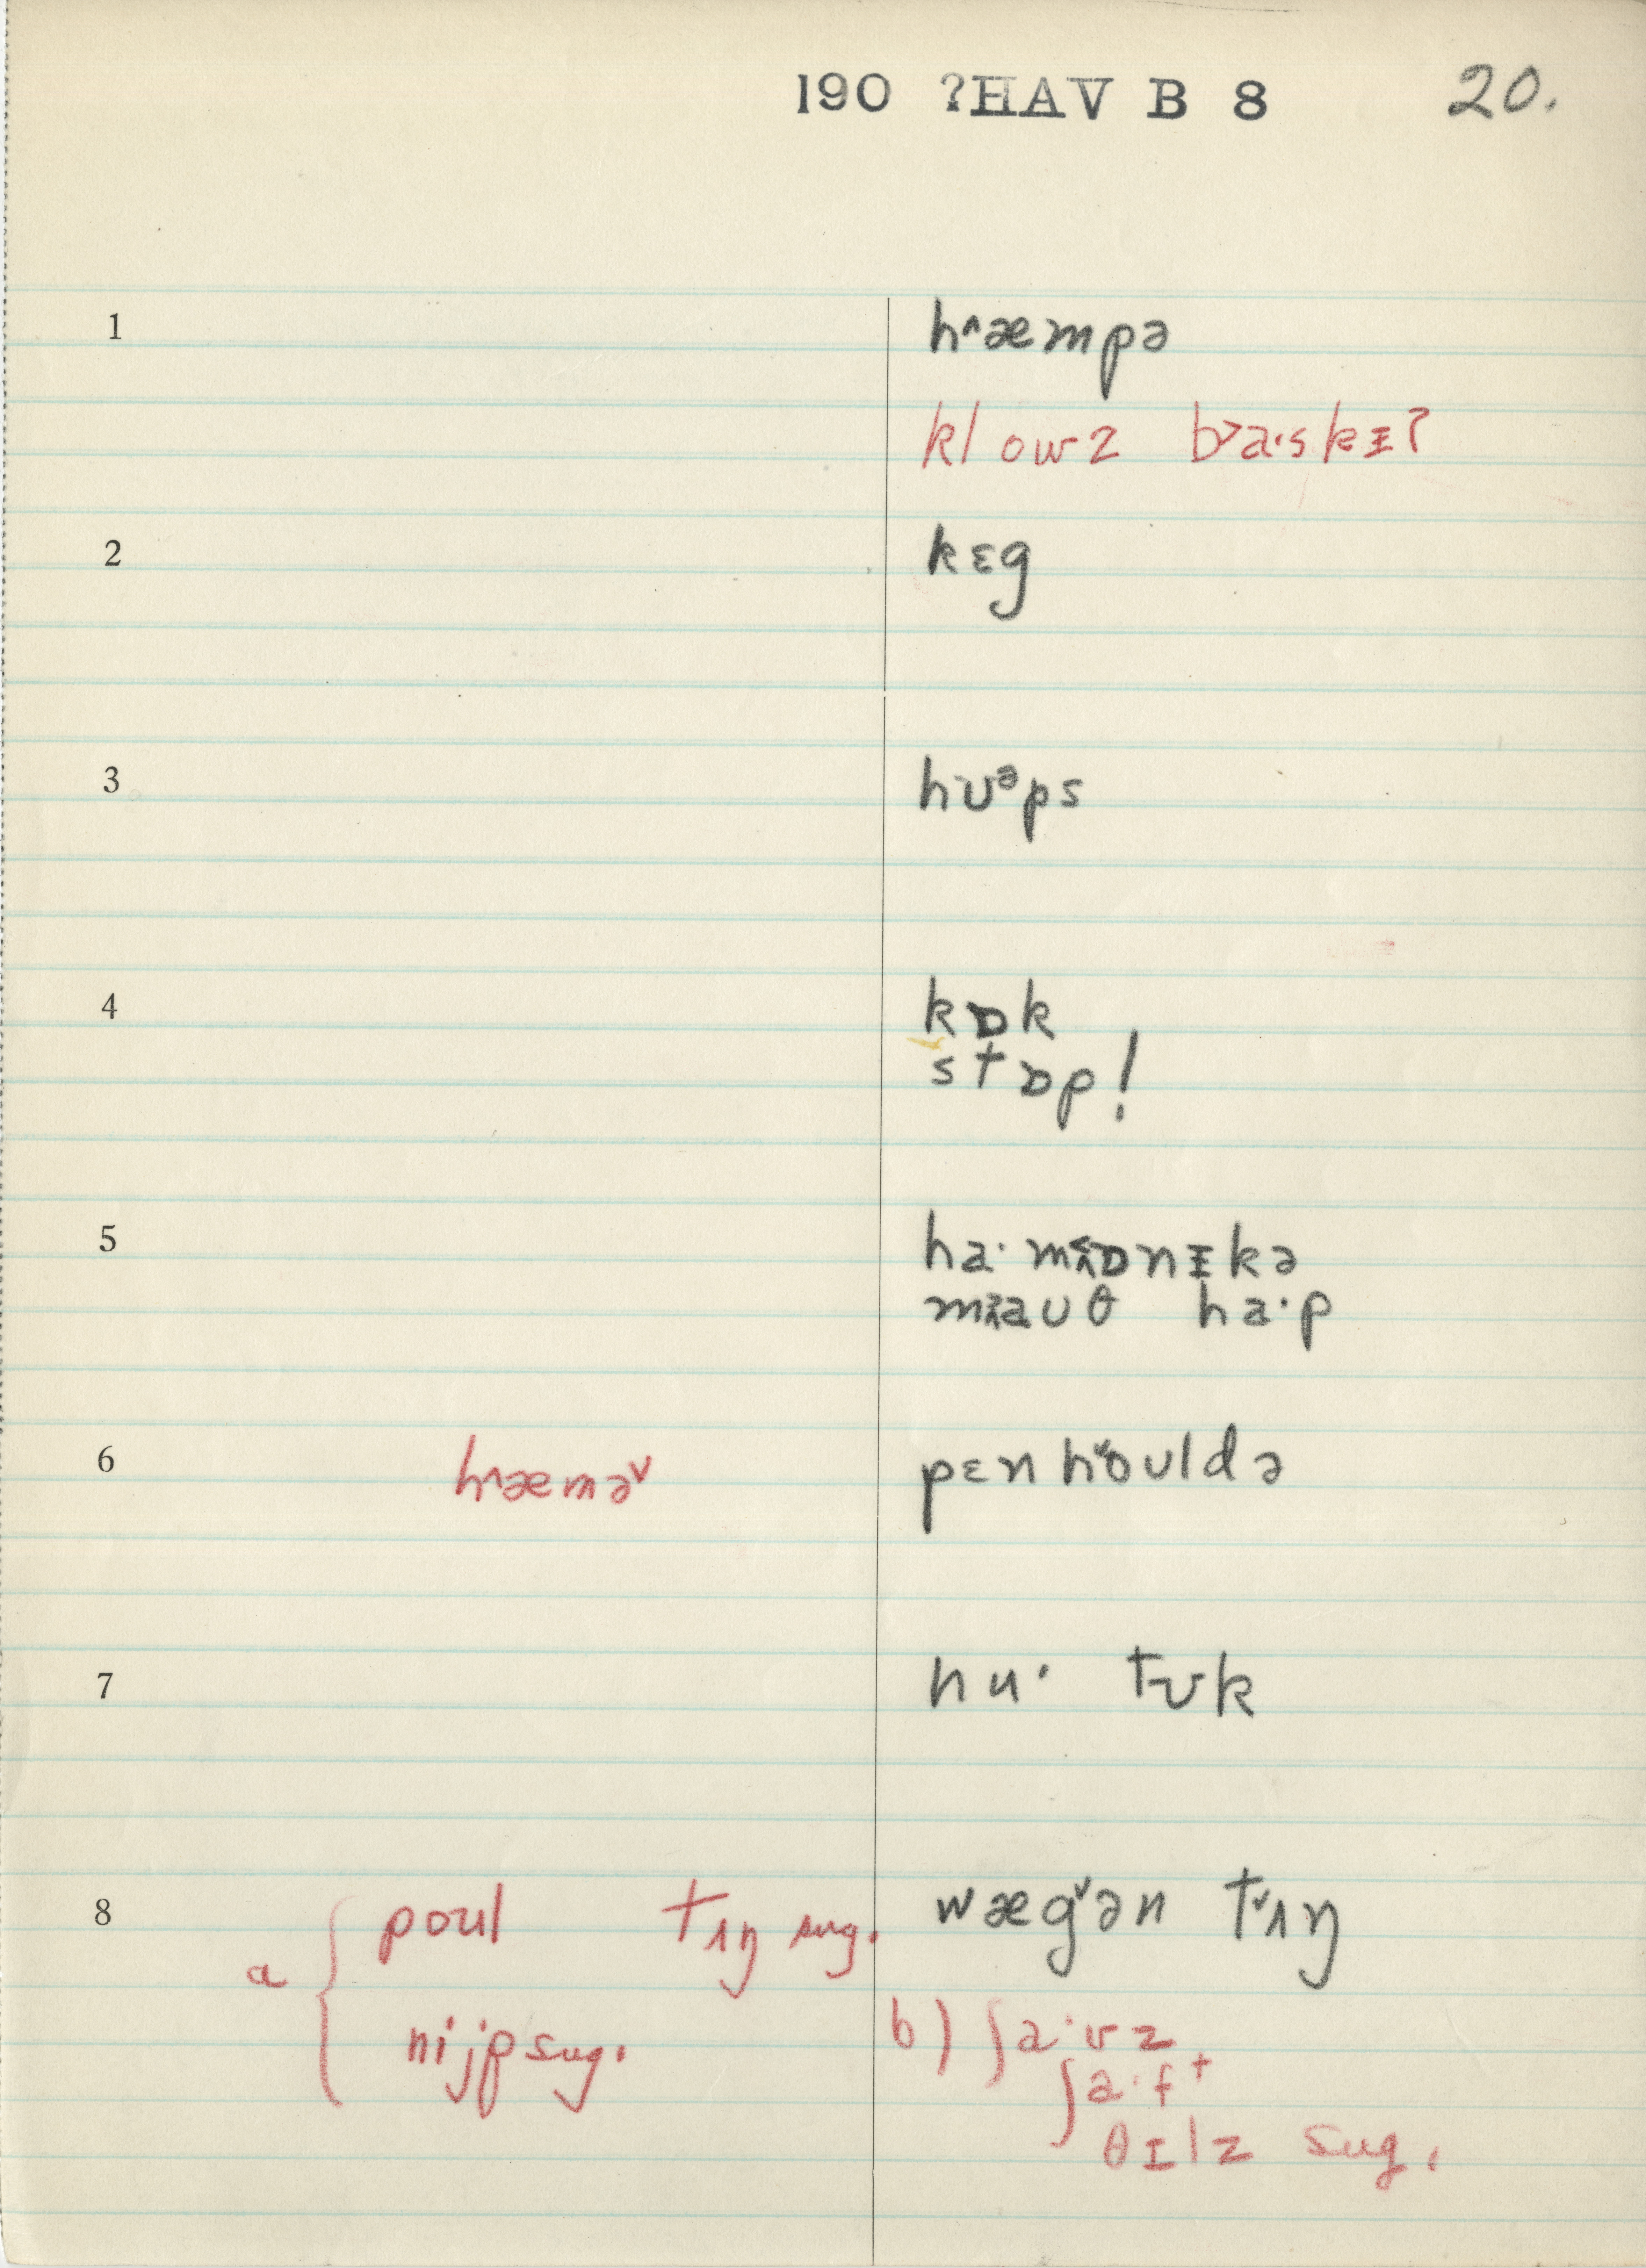 190 ?HAV B 8 20.
1 h^æmpə
klowz b>a·skɪʔ
2 kɛg
3 hʊᵊps
4 kɒk
stɒp!
5 ha· mɒnɪkə
maʊθ ha·p
6 h^æmə˅ pɛn h˅oʊldə
7 hu· tʊk
8 poʊl tʌŋ sug. wæg˅ən t˅ʌŋ
a {
nijp sug. b) ʃa·vz
ʃa·ft
θɪlz sug.